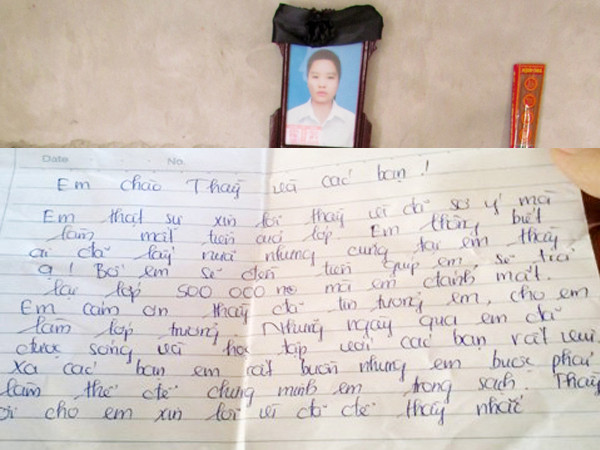 Date No.
Em chào Thầy và các bạn!
Em thật sự xin lỗi thầy vì đã sơ ý mà
làm mất tiền của lớp. Em không biết
ai đã lấy nữa nhưng cũng tại em thầy
ạ! Bố em sẽ đền tiền giúp em sẽ trả
lại lớp 500 000 mà em đánh mất.
Em cảm ơn thầy đã tin tưởng em, cho em
làm lớp trưởng. Những ngày qua em đã
được sống và học tập với các bạn rất vui.
Xa các bạn em rất buồn nhưng em buộc phải
làm thế để chứng minh em trong sạch. Thầy
ơi cho em xin lỗi vì đã để thầy nhắc